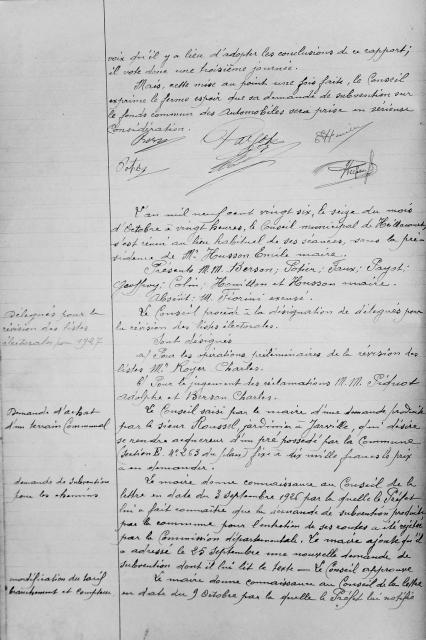 voix qu'il y a lieu d'adopter les conclusions de ce rapport;
il vote donc une troisième journée.
Mais, cette mise au point une fois faite, le Conseil
exprime le ferme espoir que sa demande de subvention sur
le fonds commun des Automobiles sera prise en sérieuse
Considération.
L'an mil neuf cent vingt six, le seize du mois
d'Octobre à vingt heures, le Conseil municipal de
s'est réuni au lieu habituel de ses séances, sous la pré-
sidence de Mr Husson Emile maire.
Présents M.M. Berson; Potier; Faux; Payot;
Geoffroy; Colin; Houillon et Husson maire.
Absent: M. Fiorini excusé.
Délégués pour la
révision des listes
électorales pour 1927
Le Conseil procède à la désignation de délégués pour
la révision des listes électorales.
Sont désignés
a) Pour les opérations préliminaires de la révision des
listes Mr Royer Charles.
b) Pour le jugement des réclamations M.M. Pidruot
Adolphe et Berson Charles.
Demande d'achat
d'un terrain Communal
Le Conseil saisi par le maire d'une demande produite
par le sieur Roussel, jardinier à Jarville, qui désire
se rendre acquéreur d'un pré possédé par la Commune
Section B. N° 263 du plan, fixe à dix mille francs le prix
à en demander.
demande de subvention
pour les chemins
Le maire donne connaissance au Conseil de la
lettre en date du 2 Septembre 1926 par laquelle le Préfet
lui a fait connaître que la demande de subvention produite
par la commune pour l'entretien de ses routes a été rejetée
par la Commission départementale. Le maire ajoute qu'il
a adressé le 25 Septembre une nouvelle demande de
subvention dont il lui lit le texte — Le Conseil approuve
modification du tarif
branchement et compteur
Le maire donne connaissance au Conseil de la lettre
en date du 9 Octobre par laquelle le Préfet lui notifie